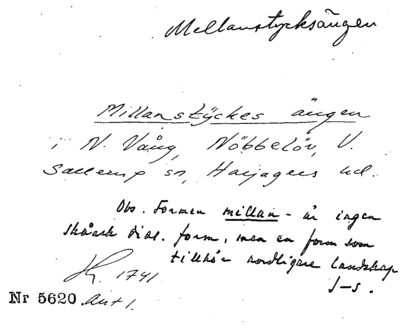 Mellanstycksängen
Millanstyckes ängen
i N. Vång, Nöbbelöv, V.
Sallerup sn, Harjagers hd.
Obs. Formen millan- är ingen
skånsk dial. form, men en form som
tillhör nordligare landskap
J-s.
1741
Nr 5620. Akt 1.